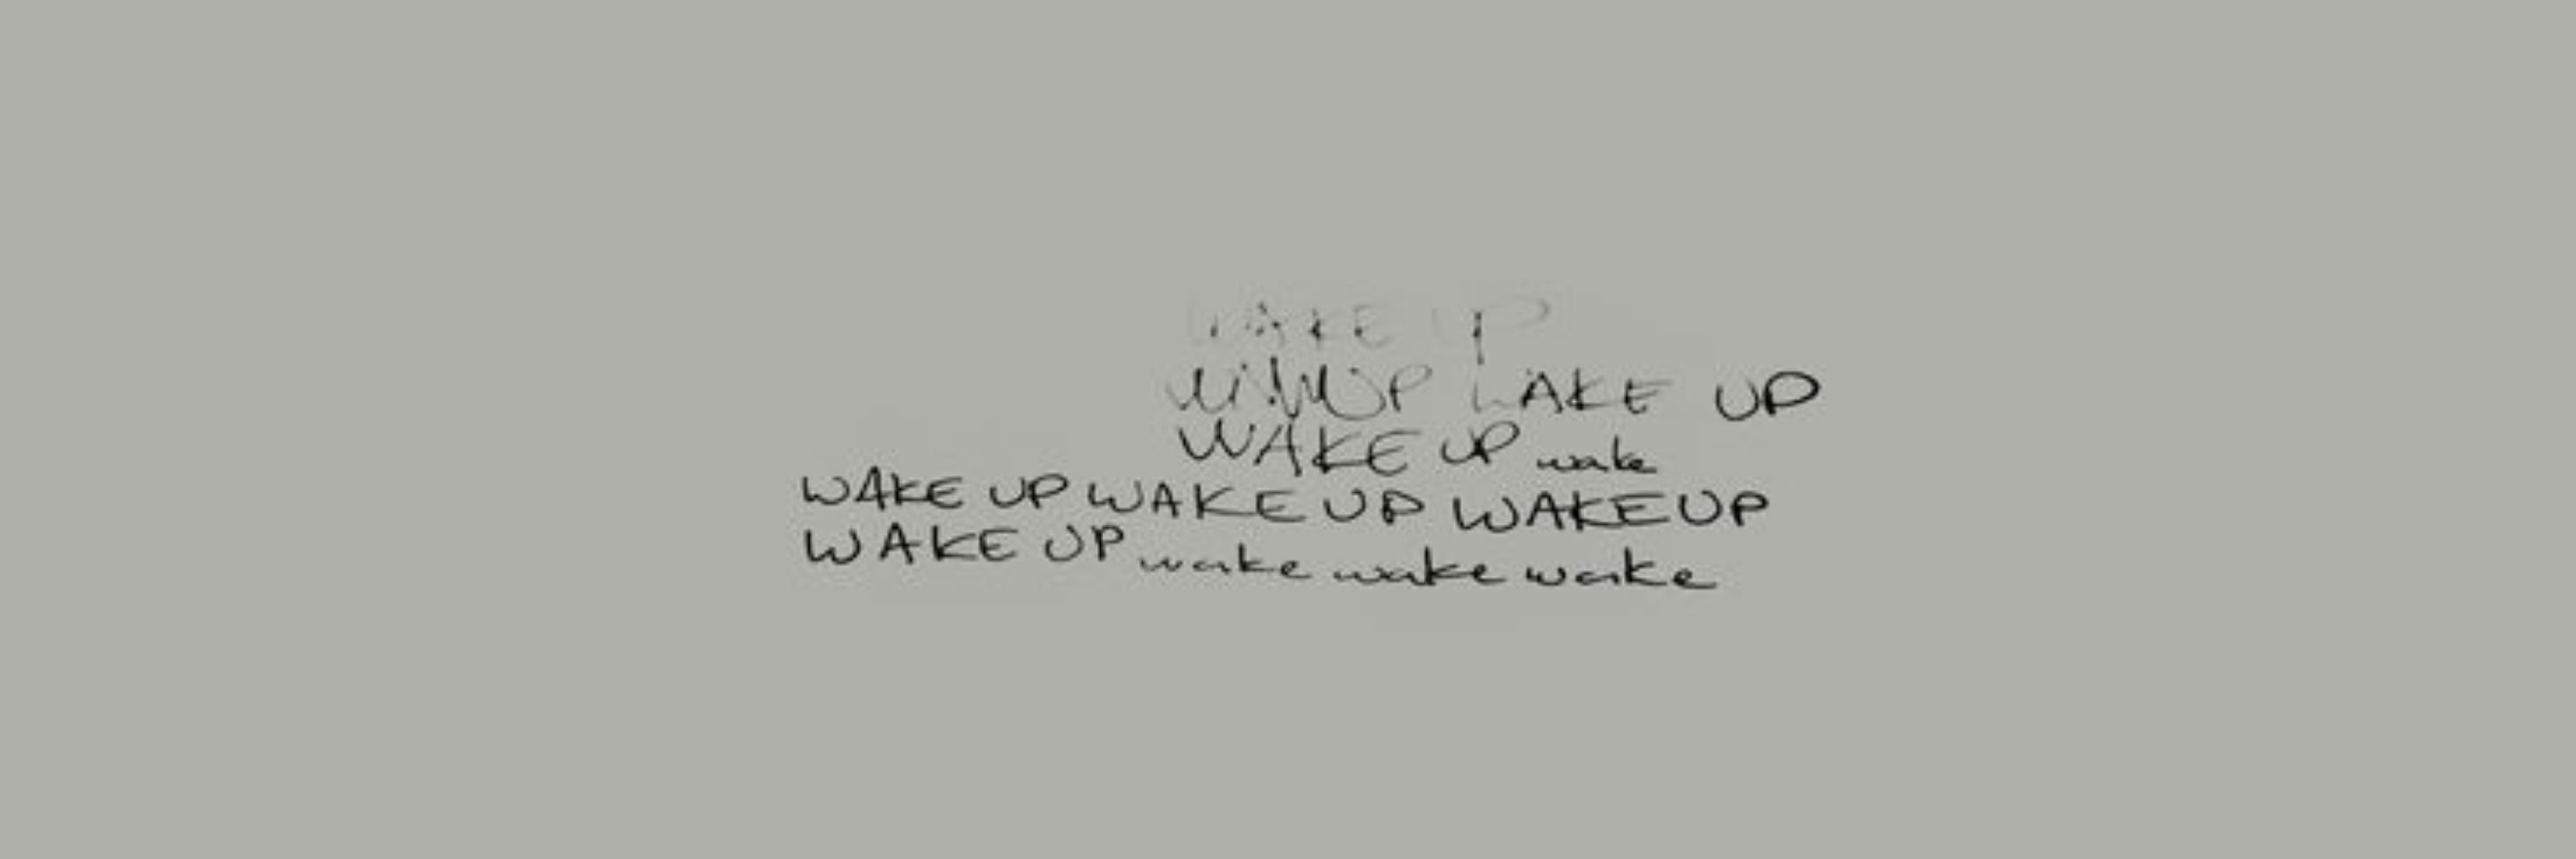 WAKE UP
UP WAKE UP
WAKE UP wake
WAKE UP WAKE UP WAKE UP
WAKE UP wake wake wake